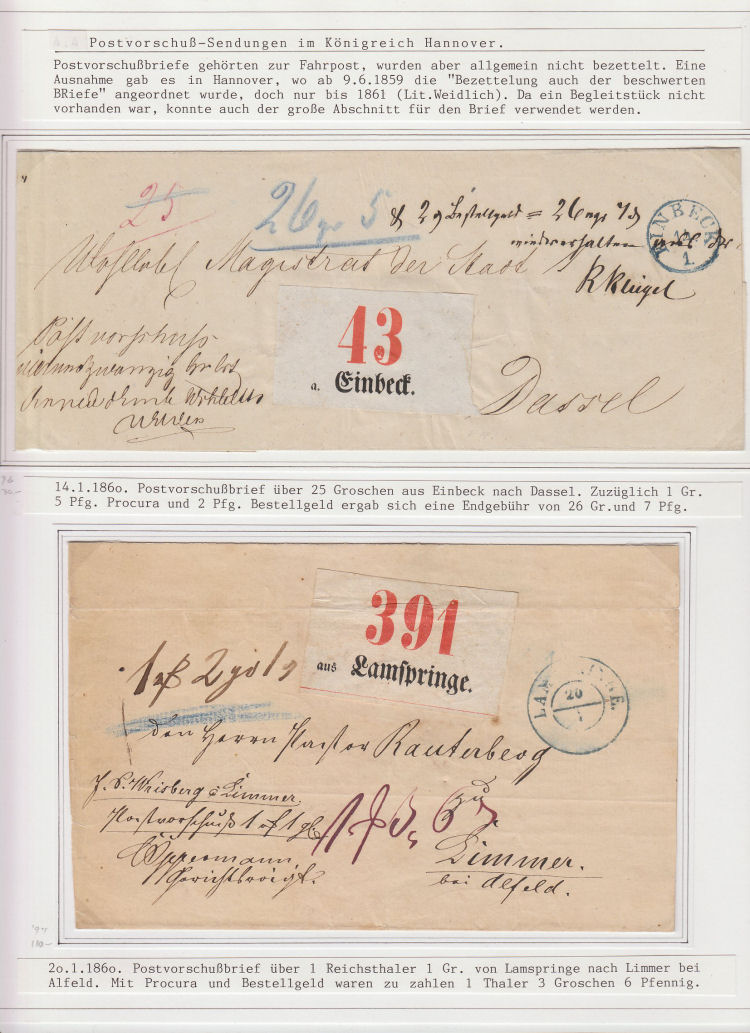 4.4 Postvorschuß-Sendungen im Königreich Hannover.
Postvorschußbriefe gehörten zur Fahrpost, wurden aber allgemein nicht bezettelt. Eine
Ausnahme gab es in Hannover, wo ab 9.6.1859 die "Bezettelung auch der beschwerten
BRiefe" angeordnet wurde, doch nur bis 1861 (Lit.Weidlich). Da ein Begleitstück nicht
vorhanden war, konnte auch der große Abschnitt für den Brief verwendet werden.
25
26 gr 5
& 2 Bestellgeld = 26
EINBECK
1.
Wohllöbl Magistrat der Stadt
43
a. Einbeck.
Postvorschuss
Dassel
14.1.186o. Postvorschußbrief über 25 Groschen aus Einbeck nach Dassel. Zuzüglich 1 Gr.
5 Pfg. Procura und 2 Pfg. Bestellgeld ergab sich eine Endgebühr von 26 Gr.und 7 Pfg.
391
aus Lamspringe.
20
Den Herrn Pastor Rauterberg
J. S. Weisberg Limmer
zu
Postvorschuß
Limmer.
Oppermann
Gerichtsvoigt.
bei Alfeld.
2o.1.186o. Postvorschußbrief über 1 Reichsthaler 1 Gr. von Lamspringe nach Limmer bei
Alfeld. Mit Procura und Bestellgeld waren zu zahlen 1 Thaler 3 Groschen 6 Pfennig.